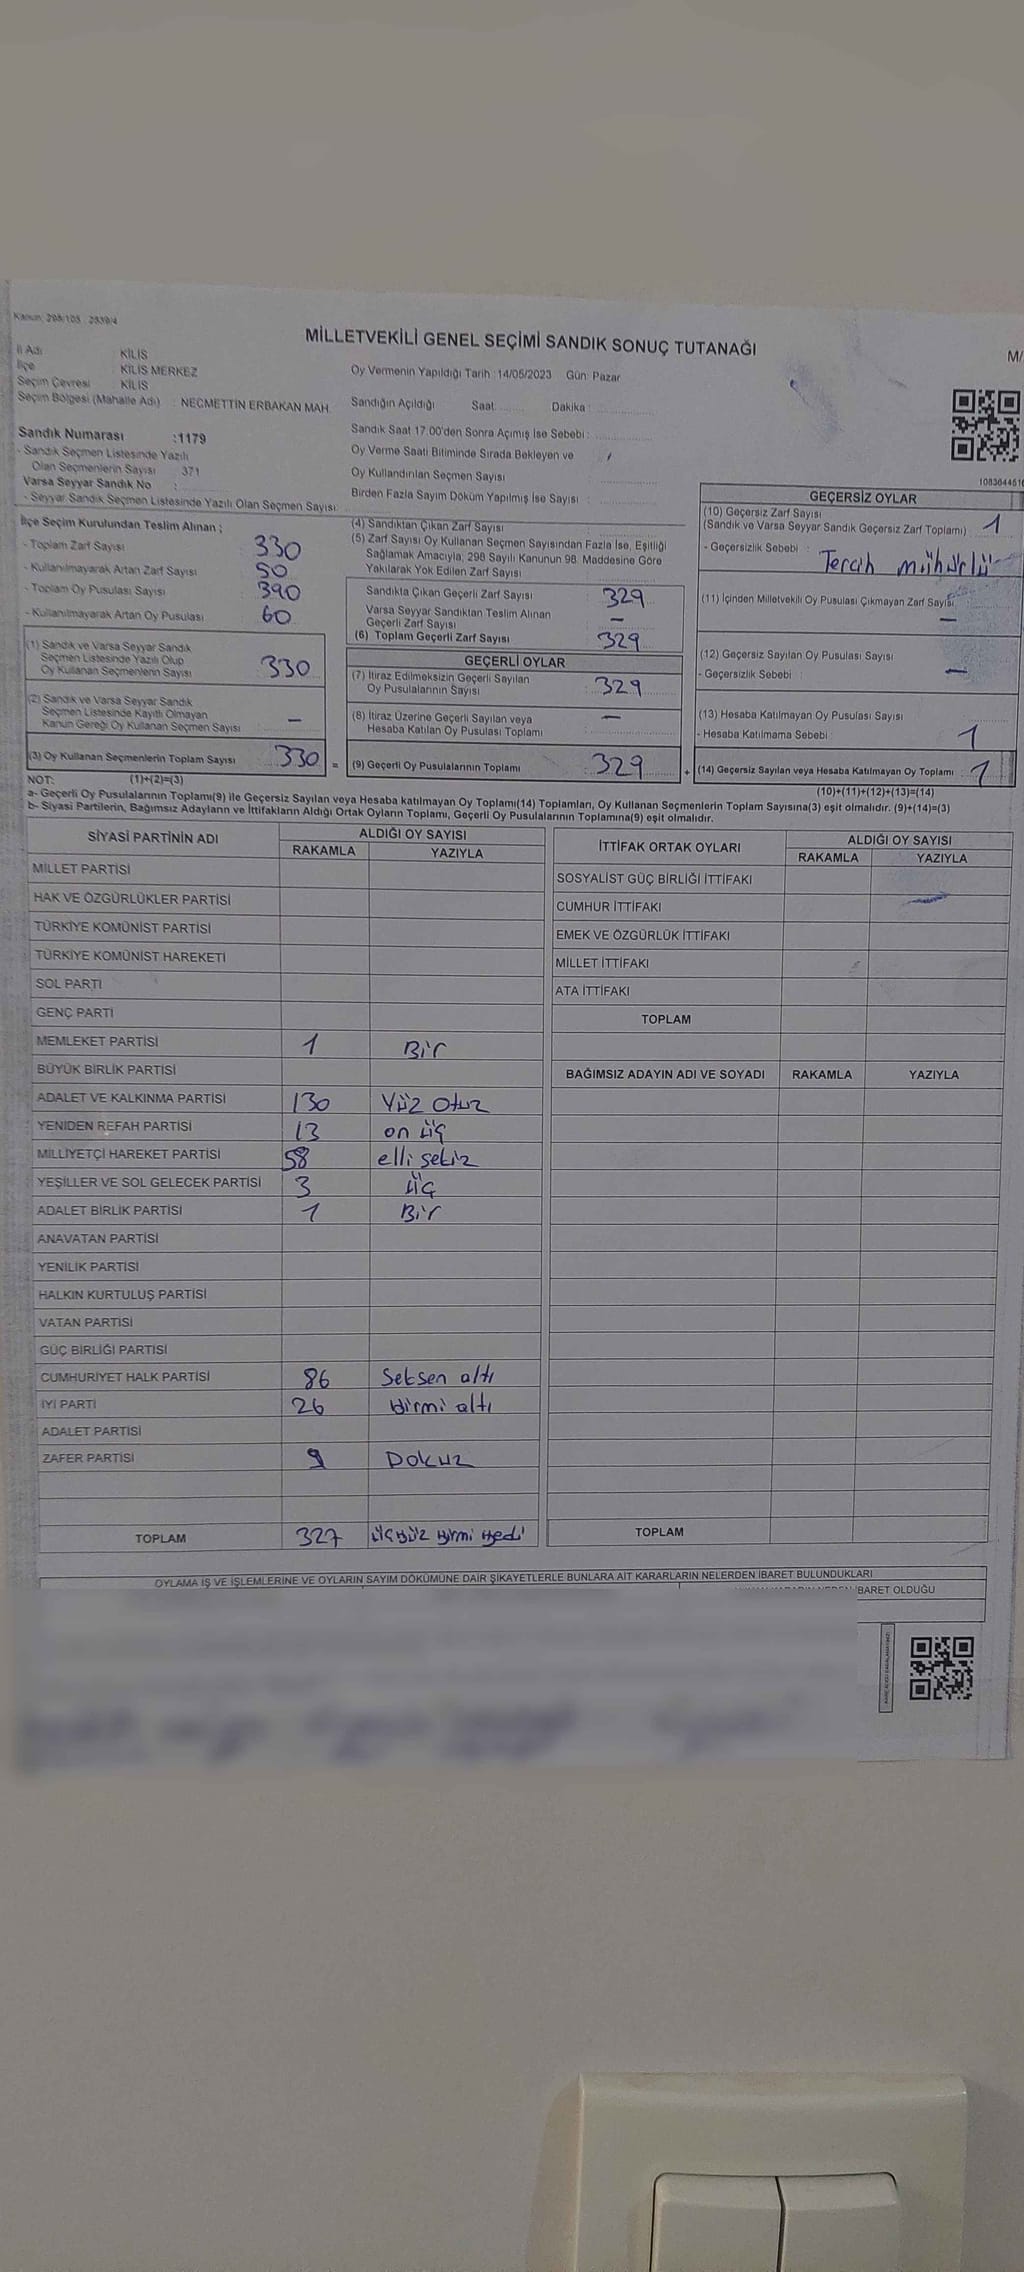 Kanun; 298/105 : 2839/4
MİLLETVEKİLİ GENEL SEÇİMİ SANDIK SONUÇ TUTANAĞI
M/
İl Adı KİLİS
İlçe KİLİS MERKEZ
Seçim Çevresi KİLİS
Seçim Bölgesi (Mahalle Adı) : NECMETTİN ERBAKAN MAH.
Oy Vermenin Yapıldığı Tarih :14/05/2023 Gün: Pazar
Sandığın Açıldığı Saat: Dakika :
Sandık Numarası :1179
- Sandık Seçmen Listesinde Yazılı
Olan Seçmenlerin Sayısı 371
Varsa Seyyar Sandık No :
- Seyyar Sandık Seçmen Listesinde Yazılı Olan Seçmen Sayısı:
Sandık Saat 17.00'den Sonra Açımış İse Sebebi :
Oy Verme Saati Bitiminde Sırada Bekleyen ve
Oy Kullandırılan Seçmen Sayısı
Birden Fazla Sayım Döküm Yapılmış İse Sayısı :
İlçe Seçim Kurulundan Teslim Alınan ;
- Toplam Zarf Sayısı 330
- Kullanılmayarak Artan Zarf Sayısı 50
- Toplam Oy Pusulası Sayısı 390
- Kullanılmayarak Artan Oy Pusulası 60
(1) Sandık ve Varsa Seyyar Sandık
Seçmen Listesinde Yazılı Olup
Oy Kullanan Seçmenlerin Sayısı 330
(2) Sandık ve Varsa Seyyar Sandık
Seçmen Listesinde Kayıtlı Olmayan
Kanun Gereği Oy Kullanan Seçmen Sayısı : –
(3) Oy Kullanan Seçmenlerin Toplam Sayısı : 330 =
(4) Sandıktan Çıkan Zarf Sayısı
(5) Zarf Sayısı Oy Kullanan Seçmen Sayısından Fazla İse, Eşitliği
Sağlamak Amacıyla; 298 Sayılı Kanunun 98. Maddesine Göre
Yakılarak Yok Edilen Zarf Sayısı
Sandıkta Çıkan Geçerli Zarf Sayısı : 329
Varsa Seyyar Sandıktan Teslim Alınan
Geçerli Zarf Sayısı –
(6) Toplam Geçerli Zarf Sayısı 329
GEÇERLİ OYLAR
(7) İtiraz Edilmeksizin Geçerli Sayılan
Oy Pusulalarının Sayısı : 329
(8) İtiraz Üzerine Geçerli Sayılan veya
Hesaba Katılan Oy Pusulası Toplamı : –
(9) Geçerli Oy Pusulalarının Toplamı : 329 +
GEÇERSİZ OYLAR
(10) Geçersiz Zarf Sayısı
(Sandık ve Varsa Seyyar Sandık Geçersiz Zarf Toplamı) : 1
- Geçersizlik Sebebi : Tercih mühürlü
(11) İçinden Milletvekili Oy Pusulası Çıkmayan Zarf Sayısı –
(12) Geçersiz Sayılan Oy Pusulası Sayısı
- Geçersizlik Sebebi : –
(13) Hesaba Katılmayan Oy Pusulası Sayısı
- Hesaba Katılmama Sebebi : 1
(14) Geçersiz Sayılan veya Hesaba Katılmayan Oy Toplamı : 1
NOT: (1)+(2)=(3)
(10)+(11)+(12)+(13)=(14)
a- Geçerli Oy Pusulalarının Toplamı(9) ile Geçersiz Sayılan veya Hesaba katılmayan Oy Toplamı(14) Toplamları, Oy Kullanan Seçmenlerin Toplam Sayısına(3) eşit olmalıdır. (9)+(14)=(3)
b- Siyasi Partilerin, Bağımsız Adayların ve İttifakların Aldığı Ortak Oyların Toplamı, Geçerli Oy Pusulalarının Toplamına(9) eşit olmalıdır.
SİYASİ PARTİNİN ADI ALDIĞI OY SAYISI
RAKAMLA YAZIYLA
MİLLET PARTİSİ
HAK VE ÖZGÜRLÜKLER PARTİSİ
TÜRKİYE KOMÜNİST PARTİSİ
TÜRKİYE KOMÜNİST HAREKETİ
SOL PARTİ
GENÇ PARTİ
MEMLEKET PARTİSİ 1 Bir
BÜYÜK BİRLİK PARTİSİ
ADALET VE KALKINMA PARTİSİ 130 Yüz Otuz
YENİDEN REFAH PARTİSİ 13 on üç
MİLLİYETÇİ HAREKET PARTİSİ 58 elli sekiz
YEŞİLLER VE SOL GELECEK PARTİSİ 3 üç
ADALET BİRLİK PARTİSİ 1 Bir
ANAVATAN PARTİSİ
YENİLİK PARTİSİ
HALKIN KURTULUŞ PARTİSİ
VATAN PARTİSİ
GÜÇ BİRLİĞİ PARTİSİ
CUMHURİYET HALK PARTİSİ 86 Seksen altı
İYİ PARTİ 26 yirmi altı
ADALET PARTİSİ
ZAFER PARTİSİ 9 Dokuz
TOPLAM 327 üçyüz yirmi yedi
İTTİFAK ORTAK OYLARI ALDIĞI OY SAYISI
RAKAMLA YAZIYLA
SOSYALİST GÜÇ BİRLİĞİ İTTİFAKI
CUMHUR İTTİFAKI
EMEK VE ÖZGÜRLÜK İTTİFAKI
MİLLET İTTİFAKI
ATA İTTİFAKI
TOPLAM
BAĞIMSIZ ADAYIN ADI VE SOYADI RAKAMLA YAZIYLA
TOPLAM
OYLAMA İŞ VE İŞLEMLERİNE VE OYLARIN SAYIM DÖKÜMÜNE DAİR ŞİKAYETLERLE BUNLARA AİT KARARLARIN NELERDEN İBARET BULUNDUKLARI
İBARET OLDUĞU